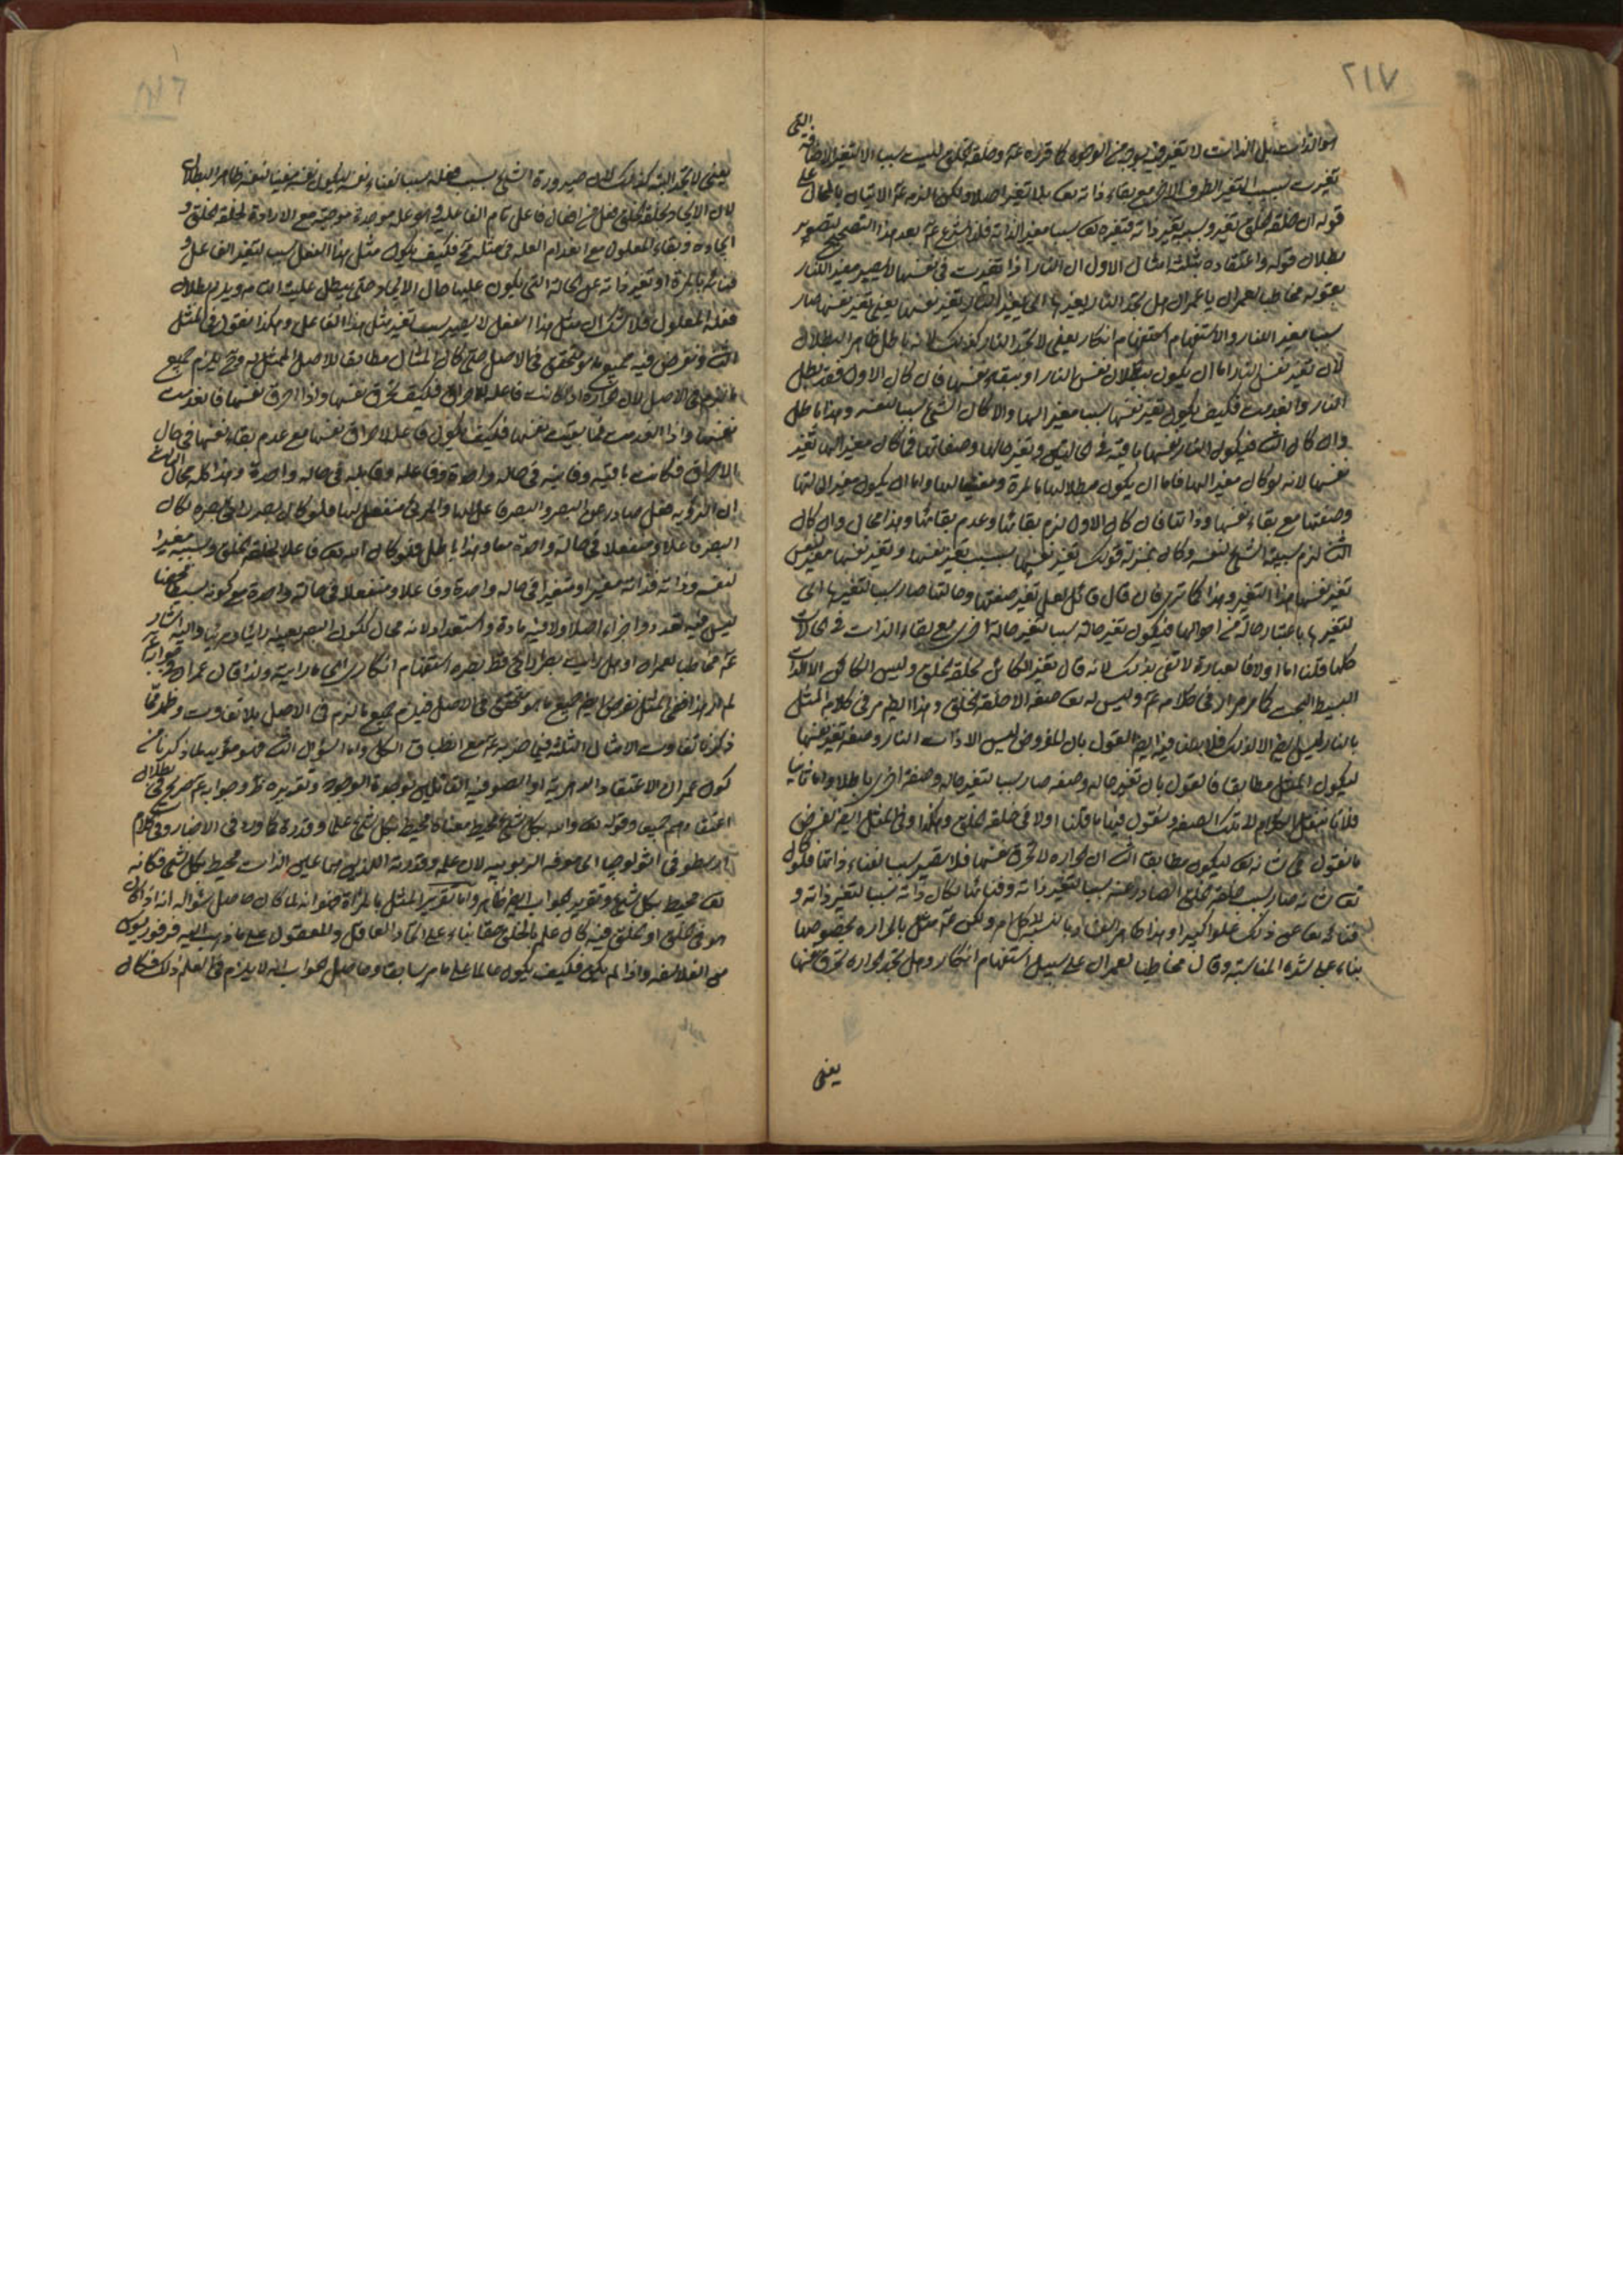 ٢١٧
هو الذات بل الذات لا تغير فيه بوجه من الوجوه كما قرره عم وخلقه الخلق ليست سببا الا لتغير الاضافة التى
تغيرت بسبب التغير الطرف الاخر مع بقاء ذاته تعالى بلا تغير اصلا ولكن الزمه عم الاتيان بالمحال على
قوله ان خلقه الخلق تغير وبسببه تغير ذاته فتغيره تعالى سببا مغير الذاته فلذا شرع عم بعد هذا التصحيح لتصوير
بطلان قوله واعتقاده بثلثة امثال الاول ان النار اذا تغيرت فى نفسها لا يصير مغير النار
بقوله مخاطبا لعمران يا عمران هل تجد النار يغيرها اى يغير النار تغير نفسها يعنى تغير نفسها صار
سببا مغير النار والاستفهام استفهام انكار يعنى لا تجد النار كذلك لانه باطل ظاهر البطلان
لان تغير نفس النار اما ان يكون ببطلان نفس النار او ببقاء نفسها فان كان الاول فقد بطل
النار وانعدمت فكيف يكون تغير نفسها سببا مغير الها والا كان الشئ سببا لنفسه وهذا باطل
وان كان الثانى فيكون النار نفسها باقية فى الحالين وتغير حالها وصفاتها فما كان مغير الها تغير
نفسها لانه لو كان مغير الها فاما ان يكون مبطلا لها بالمرة ومفنيا لها واما ان يكون مغير الحالتها
وصفتها مع بقاء نفسها وذاتها فان كان الاول لزم بقائها وعدم بقائها وهذا محال وان كان
الثانى لزم سببية الشئ لنفسه وكان بمنزلة قولك تغير نفسها بسبب تغير نفسها وتغير نفسها مغير لنفس
تغير نفسها هذا التغير وهذا كما ترى فان قال قائل لعل تغير صفتها وحالتها صار سببا لتغيرها اى
لتغيرها باعتبار حالة من احوالها فيكون تغير حالة سببا لتغير حالة اخرى مع بقاء الذات فى الحالات
كلها قلنا اما اولا فالعبارة لا تفى بذلك لانه قال تغير الكائن بخلقه الخلق وليس الكائن الا الذات
البسيط البحت كما مر مرارا فى كلامه عم وليس له تعالى صفة الا خلقه الخلق وهذا ايضا مر فى كلامه الممثل
بالنار ليس ايضا الا كذلك فلا بد هنا فيه ايضا القول بان المفروض ليس الا ذات النار وصفة تغير نفسها
ليكون الممثل مطابقا فالقول بان تغير حاله وصفه صار سببا لتغير حاله وصفة اخرى باطل واما ثانيا
فلانا ننقل الكلام الى تلك الصفة ونقول فيها ما قلنا اولا فى خلقه الخلق وهكذا وفى الممثل ايضا نفرض
ما نقول فى شانه تعالى ليكون مطابقا الثانى ان الحرارة لا تحرق نفسها فلا تصير سببا لفناء ذاتها فلو كان
تعالى شانه صار بسبب خلقه الخلق الصادر عنه سببا لتغير ذاته وفنائها لكان ذاته سببا لتغير ذاته و
فنائه تعالى عن ذلك علوا كبيرا وهذا ظاهر الفساد بالنسبة الى الكلام ولكن عم مثل بالحرارة بخصوصها
بناء على شدة المناسبة وقال مخاطبا لعمران على سبيل استفهام انكار وهل تجد الحرارة تحرق نفسها
يعنى
يعنى لا تجد البتة كذلك لان صيرورة الشئ بسبب فعله سببا لفناء نفسه ليكون نفسه مفنيا لنفسه ظاهر البطلان
لان الايجاد كخلقه الخلق فعل من افعال فاعل تام الفاعلية وهو علة موجدة موجبة مع الارادة لخلقه الخلق و
ايجاده وبقاء المعلول مع انعدام العلة فى مثله محال فكيف يكون مثل هذا الفعل سببا لتغير الفاعل و
فنائه بالمرة او تغير ذاته عن الحالة التى يكون عليها حال الايجاد حتى يبطل عليته التامة ويلزم بطلان
فعله المعلول فلا شك ان مثل هذا الفعل لا يصير سبب تغير مثل هذا الفاعل وهكذا نقول فى الممثل
الثانى ونفرض فيه جميع ما هو متحقق فى الاصل حتى كان المثال مطابقا للاصل الممثل له وح يلزم جميع
ما لزم فى الاصل لان الحرارة اذا كانت فاعلة للاحراق فكيف تحرق نفسها واذا احرق نفسها فانعدمت
نفسها واذا انعدمت فما بقيت نفسها فكيف يكون فاعلا لاحراق نفسها مع عدم بقاء نفسها فى حال
الاحراق فكانت باقية وفانية فى حالة واحدة وفاعلة وقابلة فى حالة واحدة وهذا كله محال الثالث
ان الرؤية فعل صادر عن البصر والبصر فاعل لها والمرئى منفعل لها فلو كان البصر رائى بصره لكان
البصر فاعلا ومنفعلا فى حالة واحدة معا وهذا باطل فلو كان الله تعالى فاعلا لخلقه الخلق وبسببه مغيرا
لنفسه وذاته فذاته مغيرا ومتغيرا فى حالة واحدة وفاعلا ومنفعلا فى حالة واحدة مع كونه بسيطا محضا
ليس فيه تعدد واجزاء اصلا ولا فيه مادة واستعداد لانه محال لكون البصر بعينه رائيا ومرئيا واليه اشار
عم مخاطبا لعمران او هل رايت بصرا راى قط بصره استفهام انكارى اى ما رايته ولذا قال عمران فى جوابه عم
لم ار هذا ففى الممثل نفرض ايضا جميع ما هو متحقق فى الاصل فيلزم جميع ما لزم فى الاصل بلا تفاوت وظهر مما
ذكرنا تفاوت الامثال الثلثة فيما ضربه عم مع انطباق الكل واما السؤال الثانى فهو مؤيد لما ذكرنا من
كون عمران الاعتقاد الدهرية او الصوفية القائلين بوحدة الوجود وتقريره مر وجوابه عم صريح فى بطلان
اعتقادهم جميعا وقوله تعالى والله بكل شئ محيط معناه محيط بكل شئ علما وقدرة كما ورد فى الاخبار وفى كلام
ارسطو فى اثولوجيا اى معرفة الربوبية لان علمه وقدرته اللذين هما عين الذات محيط بكل شئ فكانه
تعالى محيط بكل شئ وتقرير الجواب ايضا ظاهر واما تقرير الممثل بالمرآة فهو انه لما كان حاصل سؤاله انه اذا كان
هو فى الخلق او الخلق فيه كان علمه بالخلق حقا بناء على اتحاد العاقل والمعقول على ما ذهب اليه فرفوريوس
من الفلاسفة واذا لم يكن فكيف يكون عالما على ما مر سابقا وحاصل الجواب انه لا يلزم فى العلم ذلك فكان